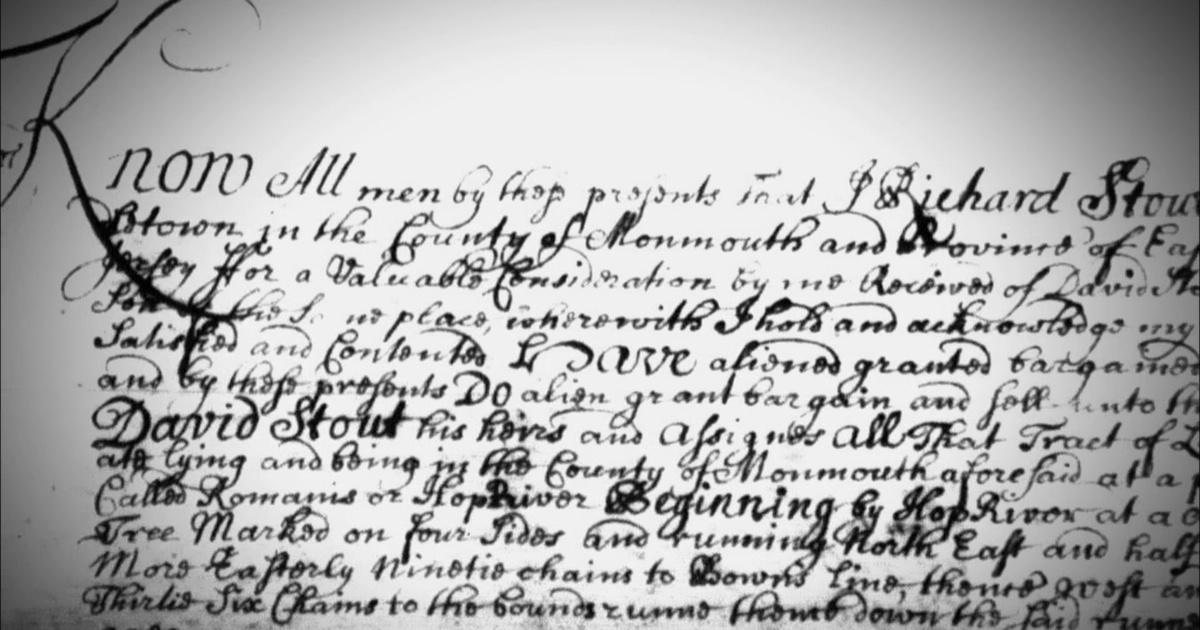 Know All men by these presents That I Richard Stou
town in the County of Monmouth and Province of Eas
Jersey ffor a Valuable Consideration by me Received of David St
Son the place, wherewith I hold and acknowledge my
Satisfied and Contented Have aliened granted bargained
and by these presents Do alien grant bargain and sell unto th
David Stout his heirs and Assignes All That Tract of L
ate lying and being in the County of Monmouth aforesaid at a p
Called Romanis or HopRiver Beginning by HopRiver at a
Tree Marked on four Sides and running North East and half
More Easterly Ninetie chains to Bowns line, thence west an
Thirtie Six Chains to the bounds runne thence down the said runn